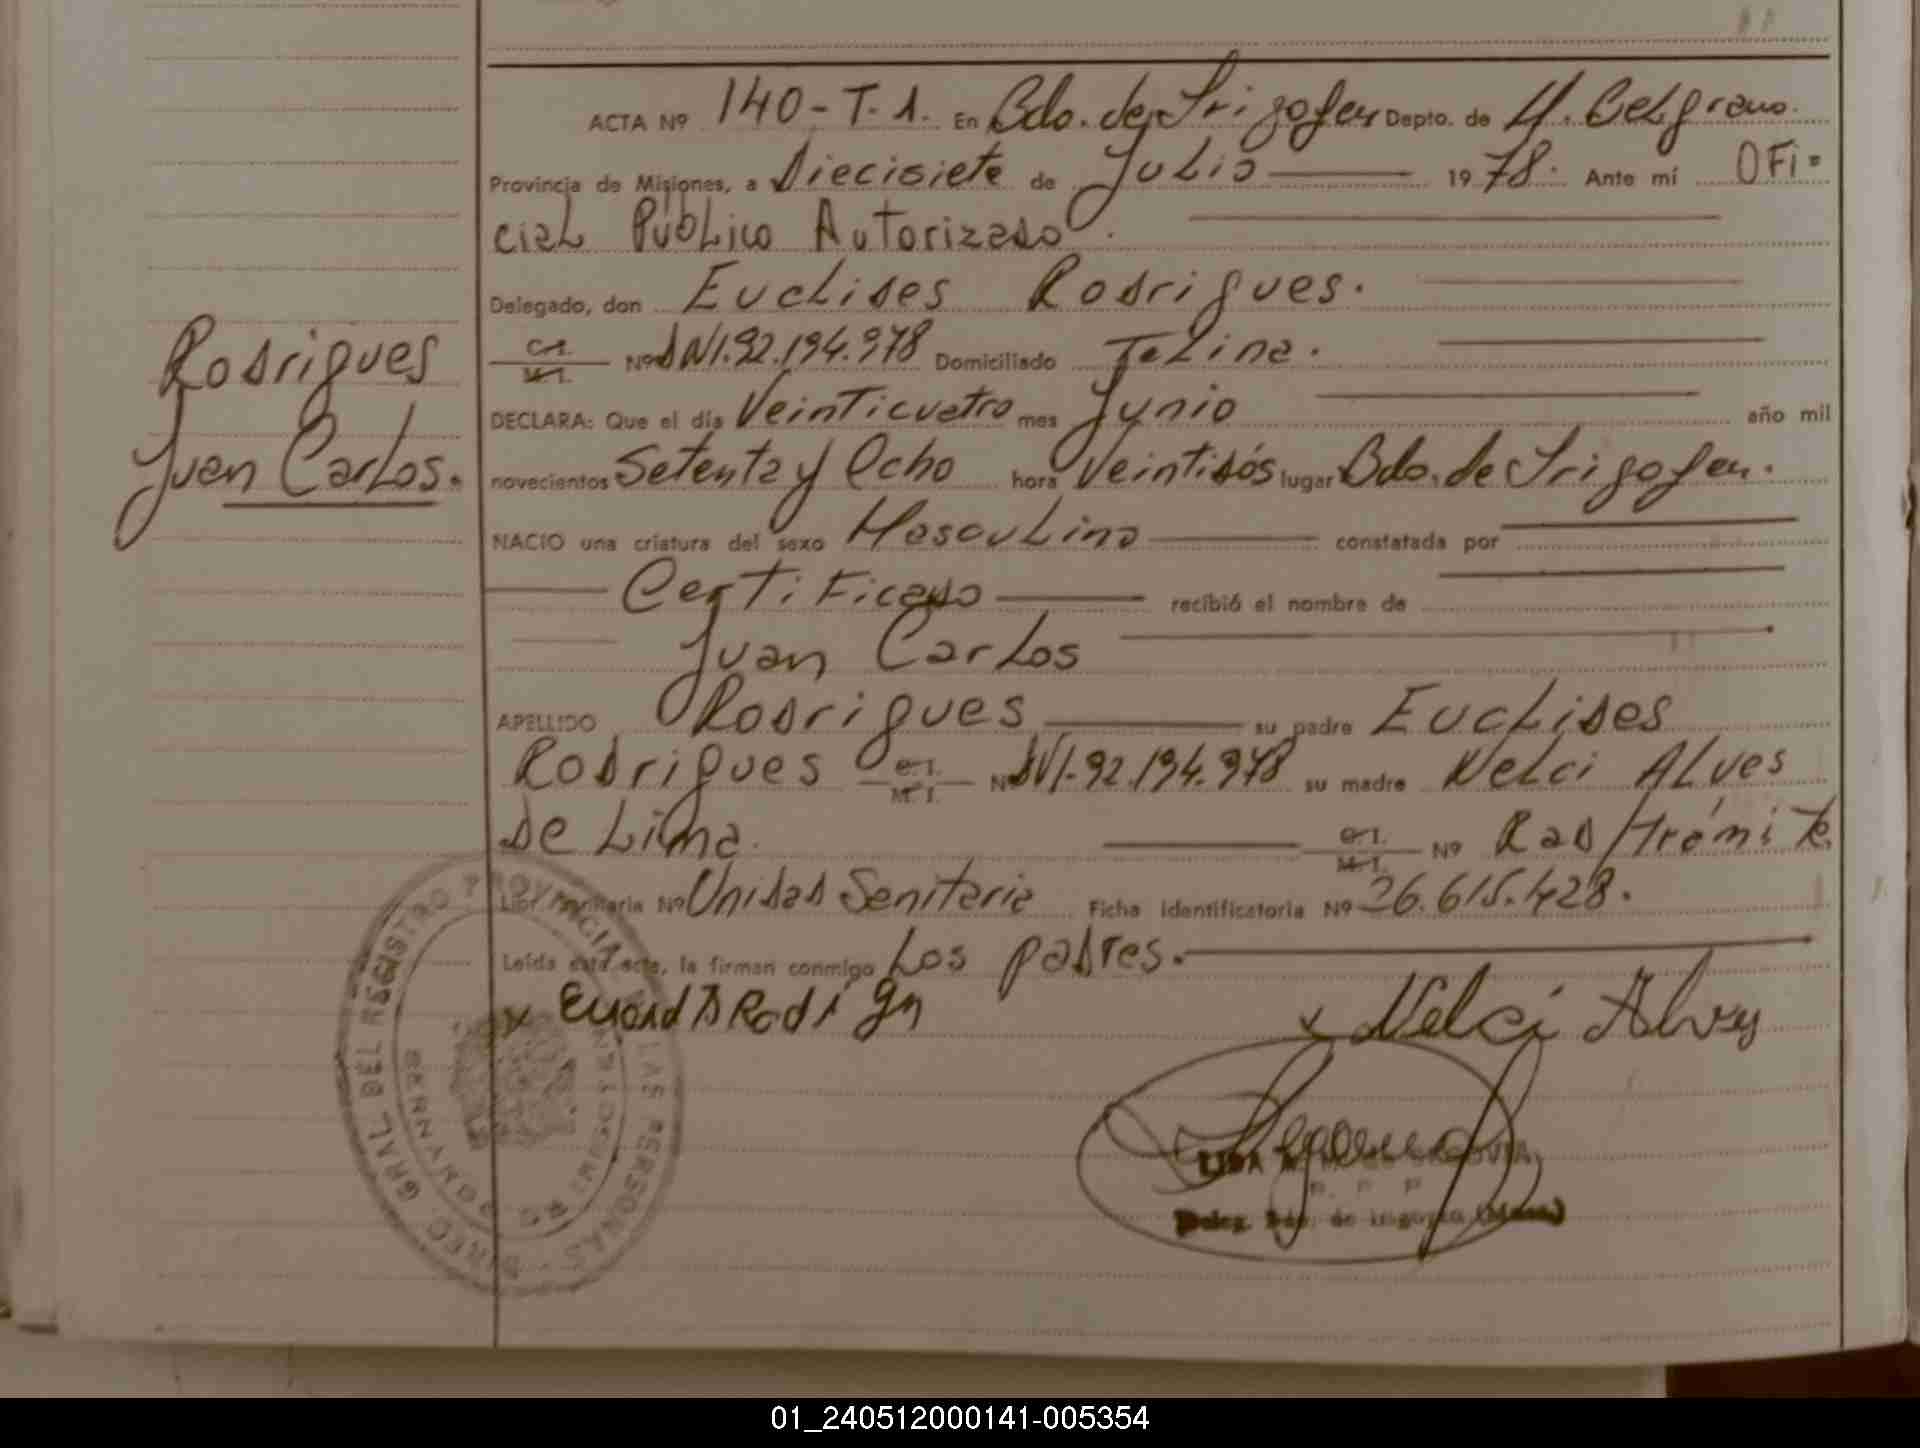 ACTA Nº 140-T.1. En Bdo. de Irigoyen Depto. de M. Belgrano.
Provincia de Misiones, a Diecisiete de Julio 1978. Ante mí OFi=
cial Público Autorizado.
Delegado, don Euclides Rodrigues.
C.I. M.I. Nº DNI.92.194.978 Domiciliado
DECLARA: Que el día Veinticuatro mes Junio año mil
Rodrigues
Juan Carlos.
novecientos Setenta y Ocho hora Veintidós lugar Bdo. de Irigoyen.
NACIO una criatura del sexo Masculino constatada por
Certificado recibió el nombre de
Juan Carlos
APELLIDO Rodrigues su padre Euclides
Rodrigues C.I. M.I. Nº DNI.92.194.978 su madre Nelci Alves
de Lima. C.I. M.I. Nº Rad/trámite
Libr Sanitaria Nº Unidad Sanitaria Ficha identificatoria Nº 26.615.428.
Leída esta acta, la firman conmigo Los padres.
x x Nelci Alves
DIREC. GRAL. DEL REGISTRO PROVINCIAL DE LAS PERSONAS
BERNARDO DE IRIGOYEN
LIDA SEGOVIA
Deleg. Bdo. de Irigoyen (Mnes.)
01_240512000141-005354